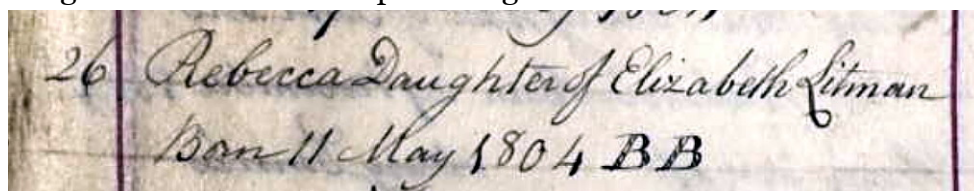 26 Rebecca Daughter of Elizabeth Litman
Born 11 May 1804 BB